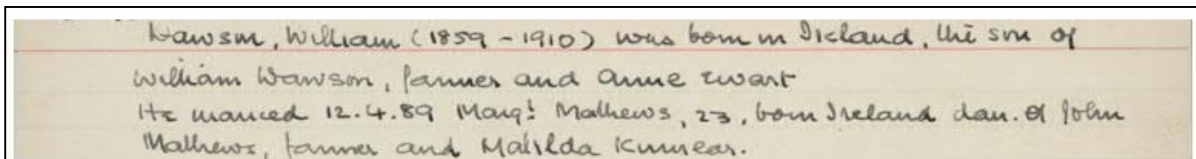 Dawson, William (1859-1910) was born in Ireland, the son of
William Dawson, farmer and Anne Ewart
He married 12.4.89 Margt Mathews, 23, born Ireland dau. of John
Mathews, farmer and Matilda Kinnear.